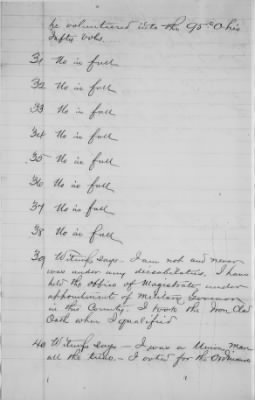 he volunteered into the 95th Ohio
Infty Vols.
31 No in full
32 No in full
33 No in full
34 No in full
35 No in full
36 No in full
37 No in full
38 No in full
39 Witness says - I am not and never
was under any dissabilities. I have
held the office of Magistrate under
appointment of Military Governor
in this County. I took the Iron Clad
Oath when I qualified
40 Witness says - I was a Union Man
all the time. - I voted for the Ordinance